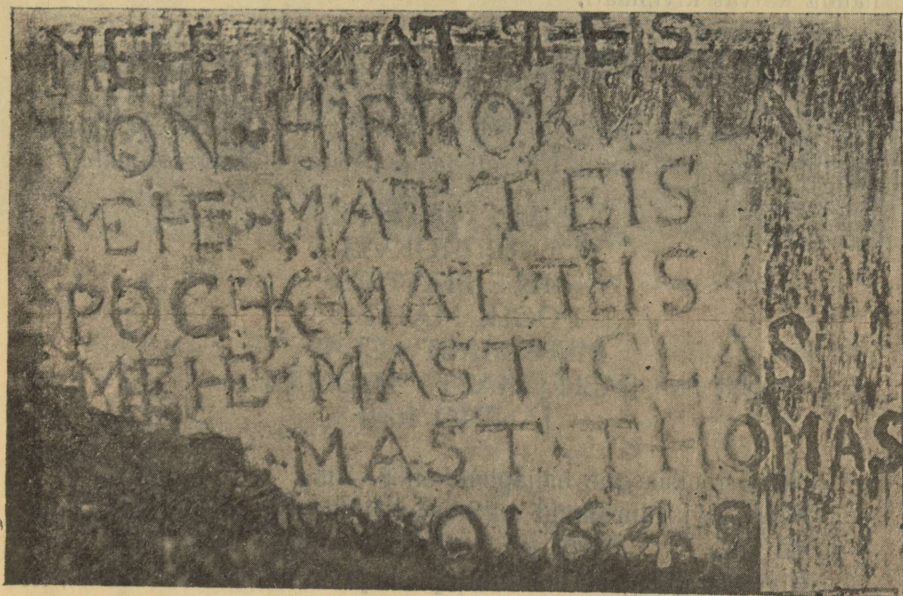 MEHE MATTEIS
VON · HIRROK
MEHE · MATTEIS
POCHE · MATTEIS
MEHE · MAST · CLAS
· MAST · THOMAS
O 1648